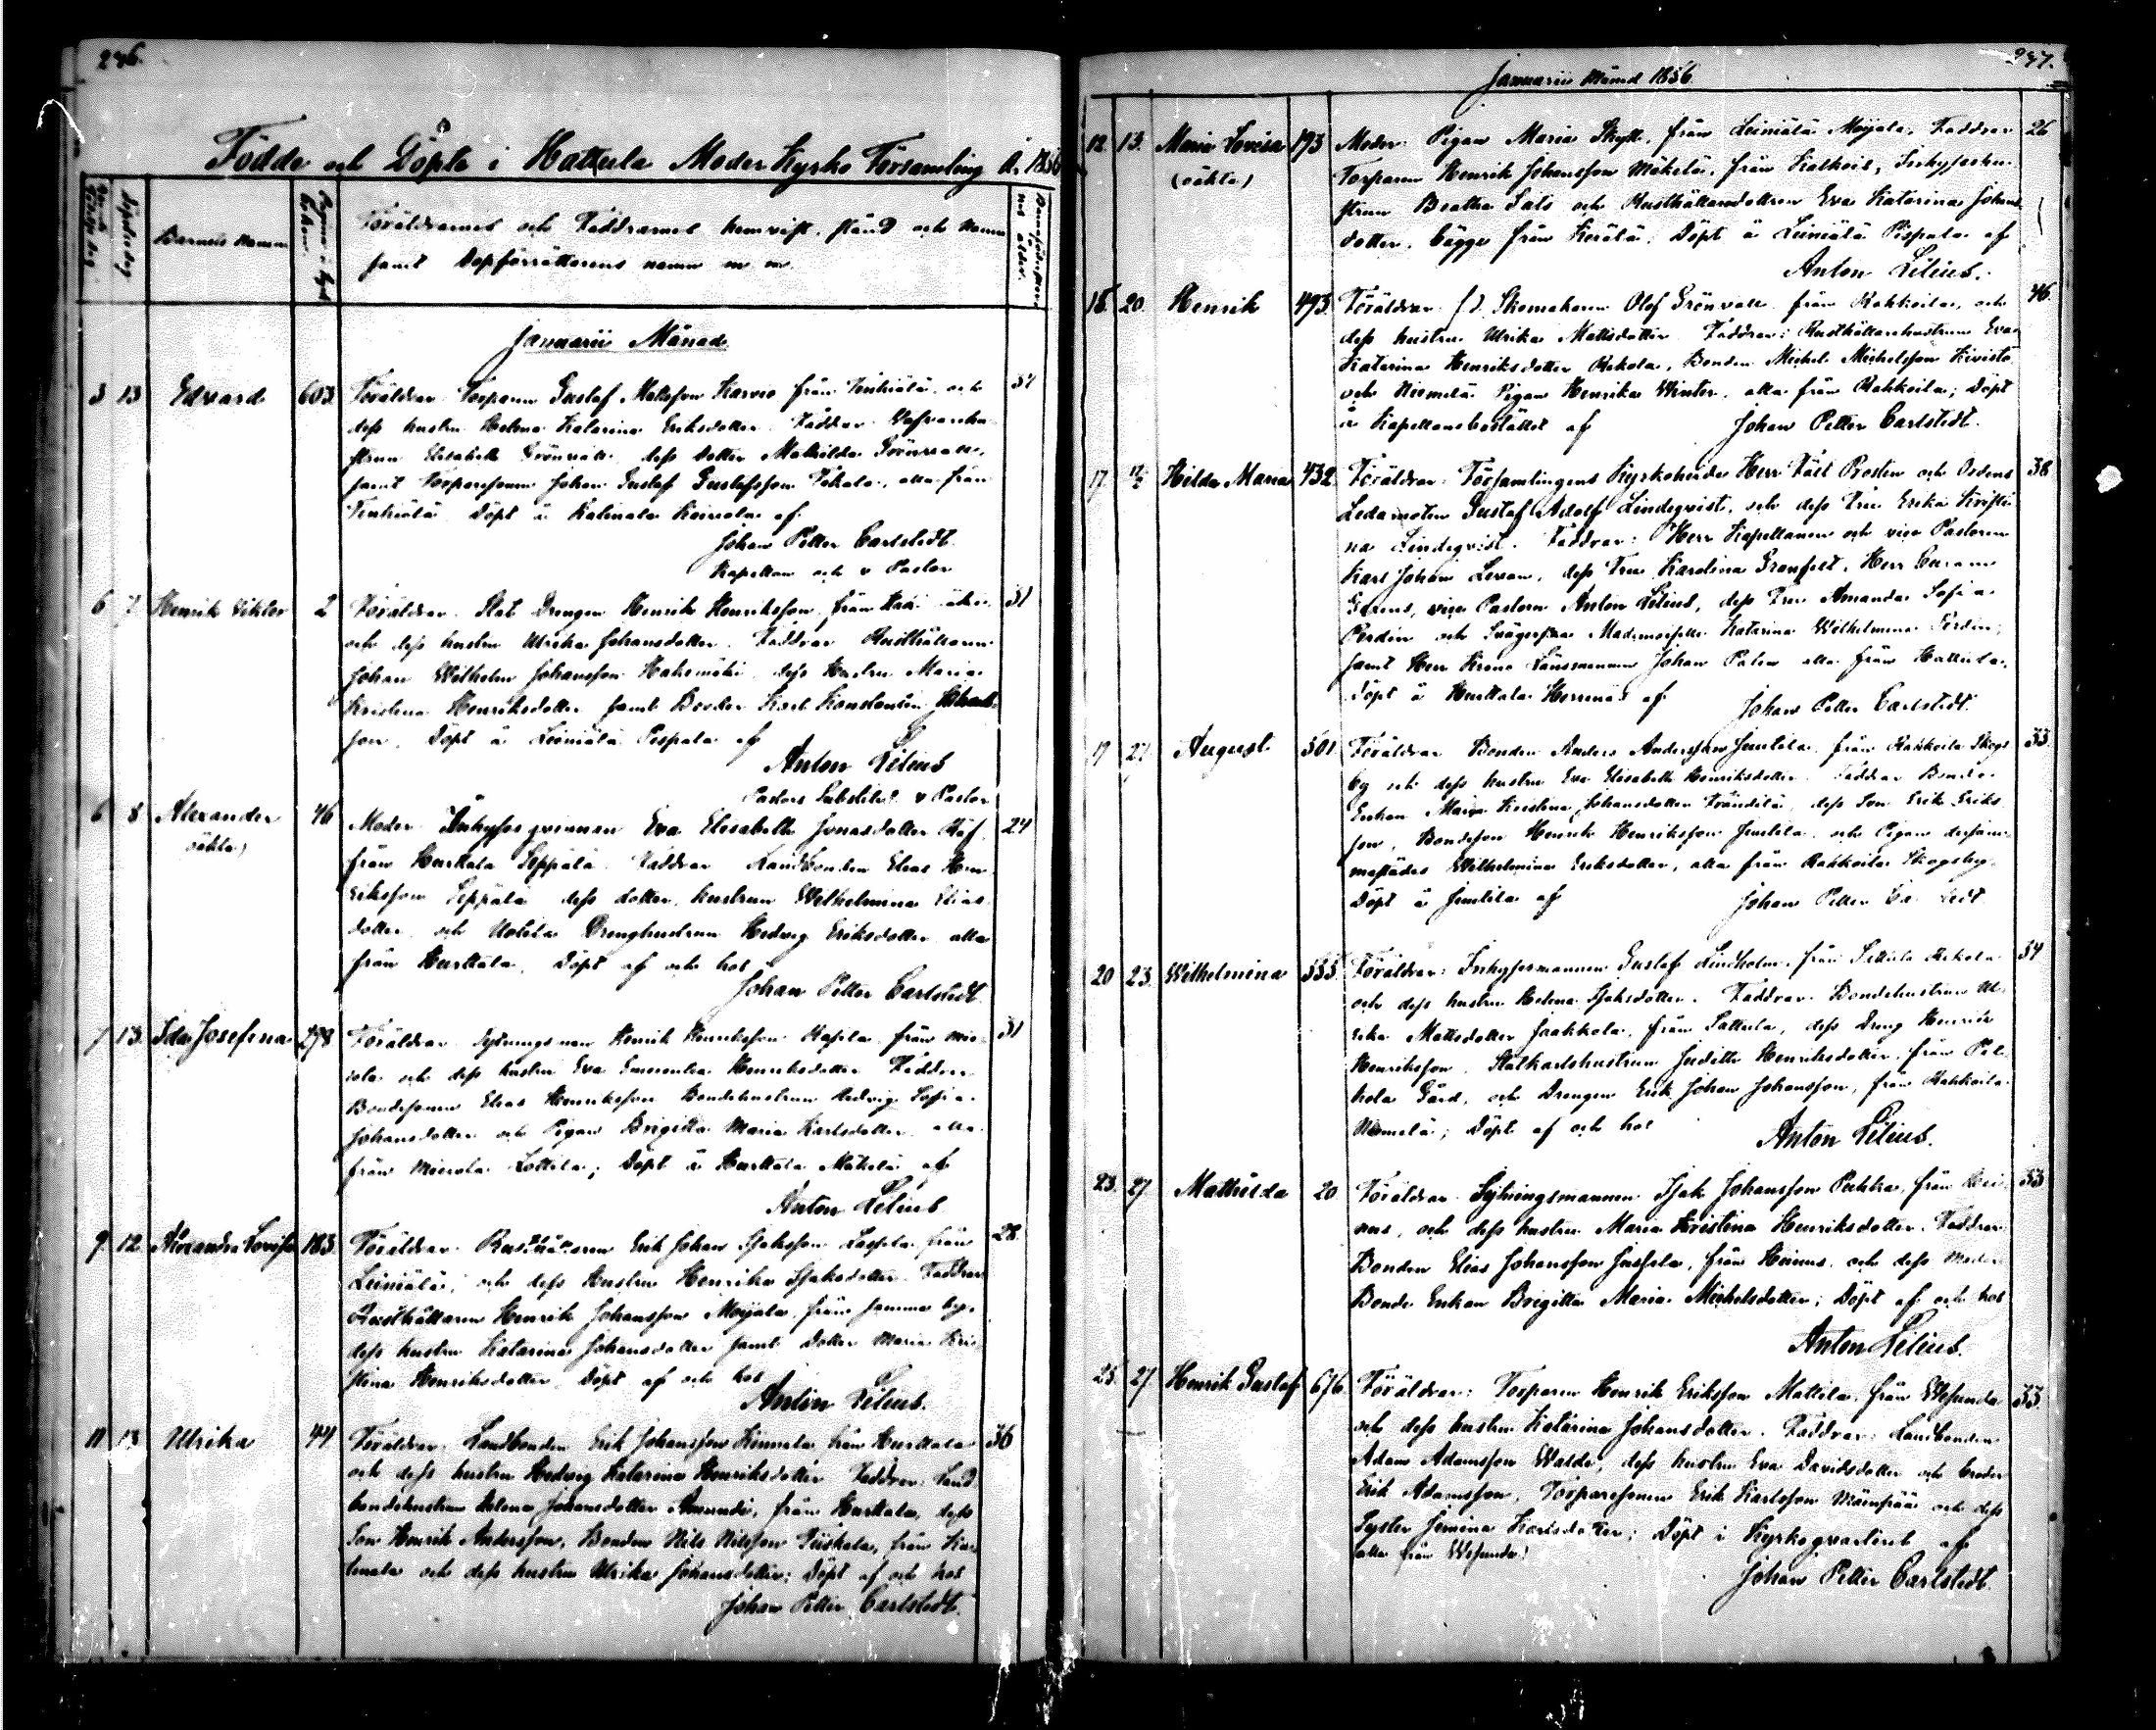 246.
Födde och Döpte i Hattula Moder Kyrko Församling År 1856
Barnets Namn
Föräldrarnes och Faddrarnes hemvist, stånd och namn
samt Dopförrättarens namn m m.
Januarii Månad.
3 13 Edvard 603 Föräldrar Torparen Gustaf Mattsson från och 31
dess hustru Helena Katarina Eriksdotter. Faddrar
Elisabeth Grönvall dess dotter Mathilda Grönvall,
samt Torparesonen Johan Gustaf Gustafsson alla från
Döpt å Katinala af
Johan Petter Carlstedt.
Kapellan och v Pastor
6 7 Henrik Viktor 2 Föräldrar Stat Drengen Henrik Henriksson, från 31
och dess hustru Ulrika Johansdotter. Faddrar Rusthållaren
Johan Wilhelm Johansson Hakimäki dess Hustru Maria
Kristina Henriksdotter samt Broder Karl Konstantin Johans-
son. Döpt å Leiniälä Pispala af
Anton Lilius
Pastors Substitut v Pastor
6 8 Alexander 46 Moder Inhyses qvinnan Eva Elisabeth Jonasdotter 24
(oäkta) från Hurttala Seppälä. Faddrar Landbonden Elias Hen-
riksson Seppälä dess dotter, hustrun Wilhelmina Elias-
dotter och Uotila Drenghustrun Hedvig Eriksdotter alla
från Hurttala. Döpt af och hos
Johan Petter Carlstedt
7 13 Ida Josefina 298 Föräldrar Sytningsman Henrik Henriksson från Mie- 31
rola och dess hustru Eva Henriksdotter Faddrar
Bondesonen Elias Henriksson Bondehustrun Hedvig Sofia
Johansdotter och Pigan Brigitta Maria Karlsdotter alla
från Mierola Lottila; Döpt å Hurttala Mäkelä af
Anton Lilius
9 12 Alexandra Lovisa 183 Föräldrar Rusthållaren Erik Johan Isaksson Lassila från 28
Leiniälä, och dess Hustru Henrika Isaksdotter. Faddrar
Rusthållaren Henrik Johansson Moijala, från samma by,
dess hustru Katarina Johansdotter samt dotter Maria Kri-
stina Henriksdotter Döpt af och hos
Anton Lilius.
11 13 Ulrika 44 Föräldrar Landbonden Erik Johansson från Hurttala 36
och dess hustru Hedvig Katarina Henriksdotter Faddrar Land
bondehustrun Helena Johansdotter från Hurttala, dess
Son Henrik Andersson, Bonden Nils Nilsson från
och dess hustru Ulrika Johansdotter; Döpt af och hos
Johan Petter Carlstedt.
247.
Januarii Månad 1856.
12 13. Maria Lovisa 193 Moder Pigan Maria Skytt, från Leiniälä Moijala, Faddrar 26
(oäkta) Torparen Henrik Johansson Mäkelä, från Inhyseshu-
strun Beatha och Rusthållaredottren Eva Katarina Johans
dotter, bägge från Kerälä; Döpt å Leiniälä Pispala af
Anton Lilius.
18 20 Henrik 493. Föräldrar f.d. Skomakaren Olof Grönvall från Rahkoila, och 46
dess hustru Ulrika Mattsdotter. Faddrar: Rusthållarehustrun Eva
Katarina Henriksdotter Rekola, Bonden Michel Michelsson Kivistö
och Niemelä Pigan Henrika Winter, alla från Rahkoila; Döpt
å Kapellansbostället af Johan Petter Carlstedt.
17 Hilda Maria 432. Föräldrar: Församlingens Kyrkoherde Herr Fält Prosten och Ordens 38
Ledamoten Gustaf Adolf Lindeqvist, och dess Fru Erika Kristi-
na Lindeqvist. Faddrar: Herr Kapellanen och vice Pastoren
Karl Johan Levan, dess Fru Karolina Granfelt, Herr
vice Pastorn Anton Lilius, dess Fru Amanda Sofia
Ferdén och Svägerska Mademoiselle Katarina Wilhelmina Ferdén,
samt Herr Krono Länsmannen Johan Palen alla från Hattula.
Döpt å Hurttala Herrnäs af Johan Petter Carlstedt.
19 27 August 501 Föräldrar Bonden Anders Andersson Juntila från Rahkoila Skogs 33
by och dess hustru Eva Elisabeth Henriksdotter. Faddrar Bonde
Enkan Maria Kristina Johansdotter dess Son Erik Eriks
son, Bondeson Henrik Henriksson Juntila och Pigan dersam-
mastädes Wilhelmina Eriksdotter, alla från Rahkoila Skogsby.
Döpt å Juntila af Johan Petter Carlstedt
20 23. Wilhelmina 353 Föräldrar: Inhysesmannen Gustaf Lindholm, från Sattula Rekola 34
och dess hustru Helena Isaksdotter. Faddrar Bondehustrun Ul-
rika Mattsdotter Jaakkola, från Sattula, dess Dreng Henrik
Henriksson, Statkarlshustrun Judith Henriksdotter, från Pel-
kola Gård, och Drengen Erik Johan Johansson, från Rahkoila
Niemelä; Döpt af och hos Anton Lilius.
23. 27 Mathilda 20 Föräldrar Sytningsmannen Isak Johansson från Hei- 33
nus, och dess hustru Maria Kristina Henriksdotter. Faddrar
Bonden Elias Johansson Jussila, från Heinus och dess Moder
Bonde Enkan Brigitta Maria Michelsdotter; Döpt af och hos
Anton Lilius.
25 27 Henrik Gustaf 676 Föräldrar: Torparen Henrik Eriksson Mattila från Wesunda 33.
och dess hustru Katarina Johansdotter. Faddrar: Landbonden
Adam Adamsson dess hustru Eva Davidsdotter och broder
Erik Adamsson, Torparesonen Erik Karlsson och dess
Syster Jemina Karlsdotter; Döpt i Kyrkoqvarteret af
(alla från Wesunda) Johan Petter Carlstedt.